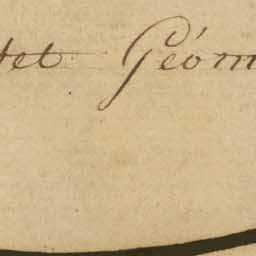 tet Géom